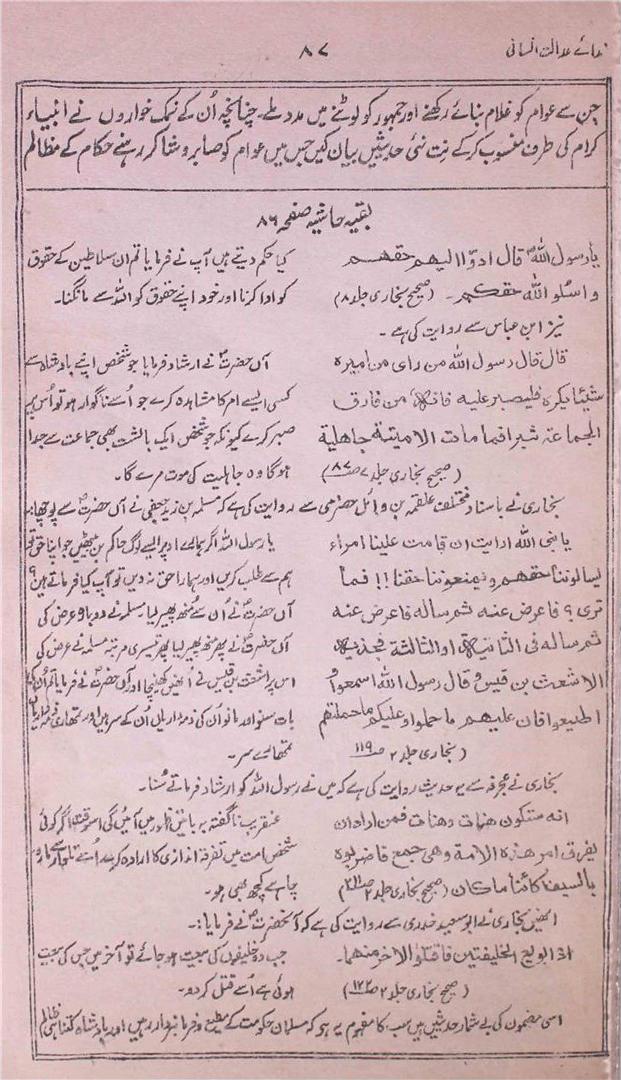 ندائے عدالت انسانی
۸۷
جن سے عوام کو غلام بنائے رکھنے اور جمہور کو لوٹنے میں مدد ملے۔ چنانچہ اُن کے نمک خواروں نے انبیاء
کرام کی طرف منسوب کرکے نت نئی حدیثیں بیان کیں جس میں عوام کو صابر و شاکر رہنے حکام کے مظالم
بقیہ حاشیہ صفحہ ۸۶
یا رسول اللہ قال ادوّا الیھم حقھم
کیا حکم دیتے ہیں آپ نے فرمایا تم ان سلاطین کے حقوق
واسئلو اللہ حقکم۔ (صحیح بخاری جلد ۸)
کو ادا کرنا اور خود اپنے حقوق کو اللہ سے مانگنا۔
نیز ابن عباس سے روایت کی ہے۔
قال قال رسول اللہ من رای من امیرہ
آں حضرتؐ نے ارشاد فرمایا جو شخص اپنے بادشاہ سے
شیئا یکرہ فلیصبر علیہ فانہ من فارق
کسی ایسے امر کا مشاہدہ کرے جو اُسے ناگوار ہو تو اُس پر
الجماعۃ شبرا فمات الا میتۃ جاھلیۃ
صبر کرے کیونکہ جو شخص ایک بالشت بھی جماعت سے جدا
(صحیح بخاری جلد ۸۷)
ہوگا وہ جاہلیت کی موت مرے گا۔
بخاری نے باسناد مختلف علقمہ بن وائل حضرمی سے روایت کی ہے کہ مسلمہ بن زید جعفی نے آں حضرتؐ سے پوچھا:۔
یا نبی اللہ ارایت ان قامت علینا امراء
یا رسول اللہ اگر ہمارے اوپر ایسے لوگ حاکم بن بیٹھیں جو اپنا حق تو
لیسالوننا حقھم ویمنعوننا حقنا!! فما
ہم سے طلب کریں اور ہمارا حق نہ دیں تو آپ کیا فرماتے ہیں؟
تری؟ فاعرض عنہ ثم سالہ فاعرض عنہ
آں حضرتؐ نے اُن سے منھ پھیر لیا مسلمہ نے دوبارہ عرض کی
ثم سالہ فی الثانیۃ او الثالثۃ فجذبہ
آں حضرتؐ نے پھر منھ پھیر لیا پھر تیسری مرتبہ مسلمہ نے عرض کی
الاشعث بن قیس وقال رسول اللہ اسمعوا و
اس پر اشعث بن قیس نے انھیں کھینچا اور آں حضرتؐ نے فرمایا تم اُن کی
اطیعوا فان علیھم ما حملوا وعلیکم ما حملتم
بات سنو اور مانو اُن کی ذمہ داریاں اُن کے سر ہیں اور تمھاری ذمہ داریاں
(بخاری جلد ۲ صـ۱۱۹)
تمھارے سر۔
بخاری نے عرفجہ سے یہ حدیث روایت کی ہے کہ میں نے رسول اللہ کو ارشاد فرماتے سُنا۔
انہ ستکون ھنات وھنات فمن اراد ان
عنقریب ناگفتہ بہ باتیں ظہور میں آئیں گی اسوقت اگر کوئی
یفرق امر ھذہ الامۃ وھی جمع فاضربوہ
شخص امت میں تفرقہ اندازی کا ارادہ کرے اُسے تلوار سے مارو
بالسیف کائنا ماکان (صحیح بخاری جلد ۲)
چاہے کچھ بھی ہو۔
انھیں بخاری نے ابو سعید خدری سے روایت کی ہے کہ آنحضرتؐ نے فرمایا:۔
اذا بویع الخلیفتین فاقتلوا الآخر منھما۔
جب دو خلیفوں کی بیعت ہو جائے تو آخر میں جس کی بیعت
(صحیح بخاری جلد ۲ صـ۱۲۲)
ہوئی ہے اُسے قتل کردو۔
اسی مضمون کی بے شمار حدیثیں ہیں سب کا مفہوم یہ ہو کہ مسلمان حکومت کے مطیع و فرمانبردار رہیں اور بادشاہ کتنا ہی ظالم